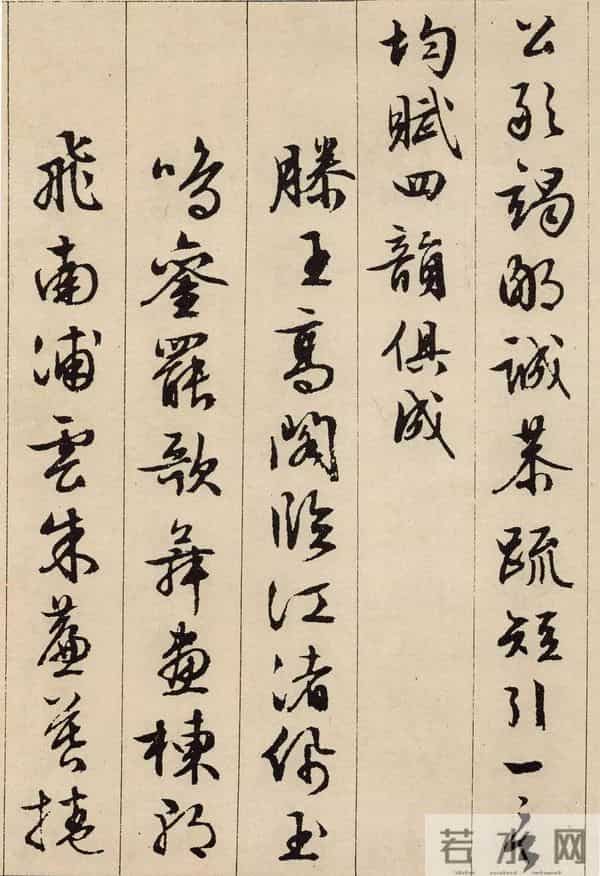 公敢竭鄙誠恭疏短引一言
均賦四韻俱成
滕王高閣臨江渚佩玉
鳴鑾罷歌舞畫棟朝
飛南浦雲朱簾暮捲
若水网